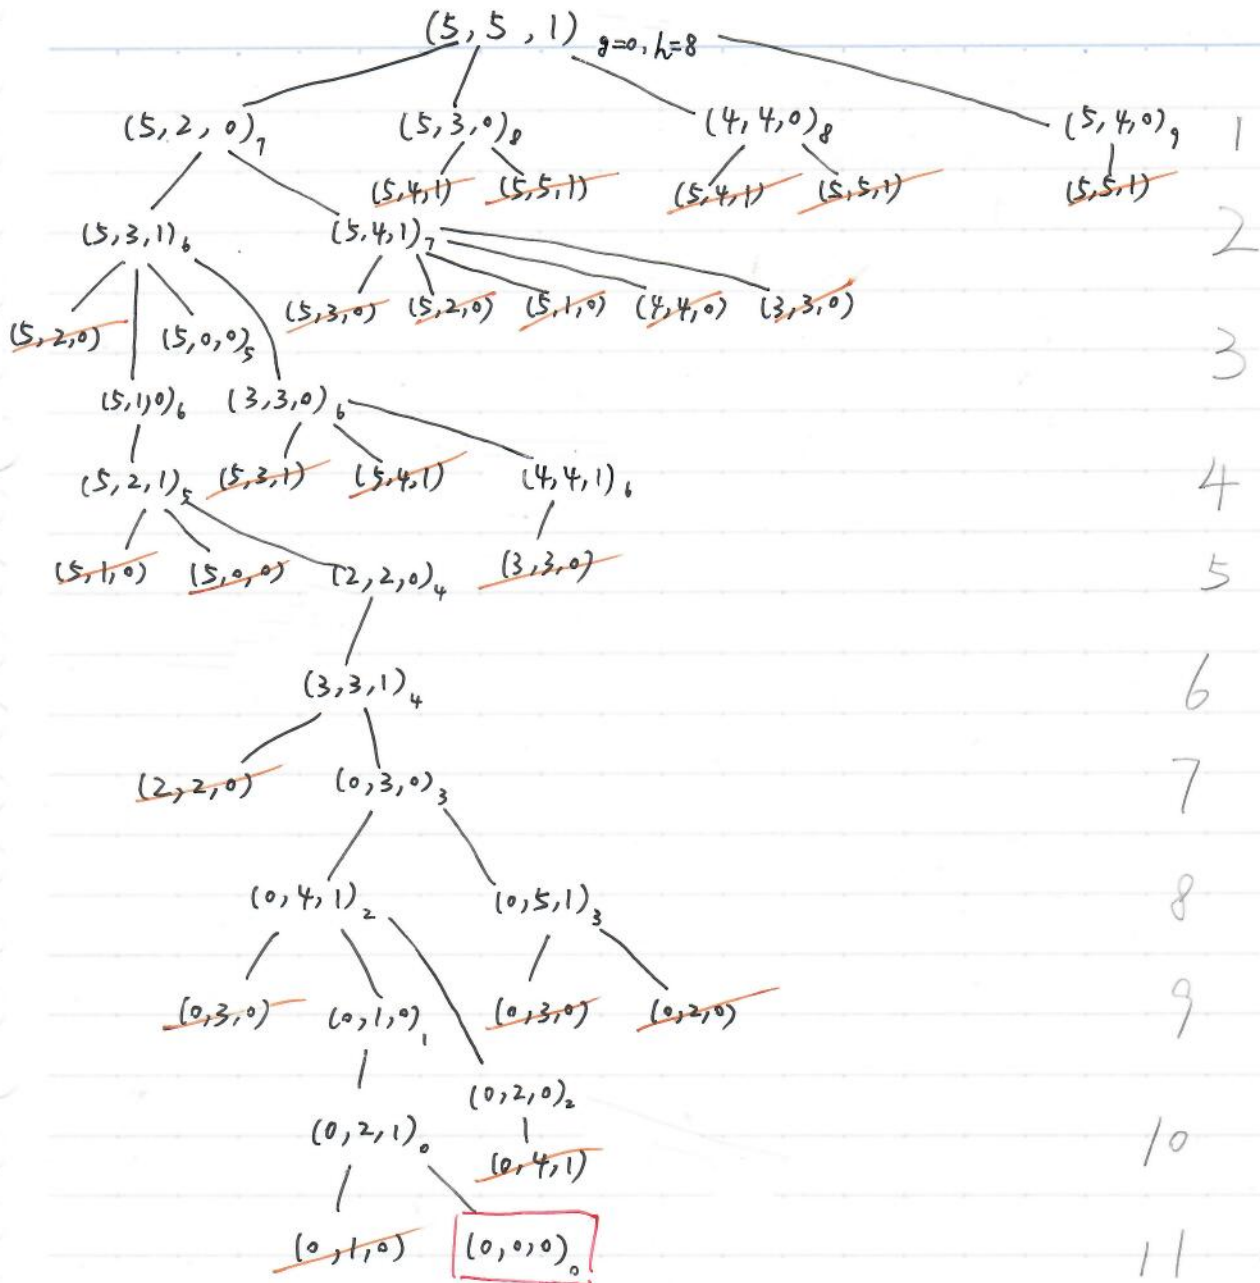 (5, 5, 1) g=0, h=8
(5, 2, 0)₇ (5, 3, 0)₈ (4, 4, 0)₈ (5, 4, 0)₉ 1
(5, 4, 1) (5, 5, 1) (5, 4, 1) (5, 5, 1) (5, 5, 1)
(5, 3, 1)₆ (5, 4, 1)₇ 2
(5, 2, 0) (5, 0, 0)₅ (5, 3, 0) (5, 2, 0) (5, 1, 0) (4, 4, 0) (3, 3, 0) 3
(5, 1, 0)₆ (3, 3, 0)₆
(5, 2, 1)₅ (5, 3, 1) (5, 4, 1) (4, 4, 1)₆ 4
(5, 1, 0) (5, 0, 0) (2, 2, 0)₄ (3, 3, 0) 5
(3, 3, 1)₄ 6
(2, 2, 0) (0, 3, 0)₃ 7
(0, 4, 1)₂ (0, 5, 1)₃ 8
(0, 3, 0) (0, 1, 0)₁ (0, 3, 0) (0, 2, 0) 9
(0, 2, 0)₂
(0, 2, 1)₀ (0, 4, 1) 10
(0, 1, 0) (0, 0, 0)₀ 11